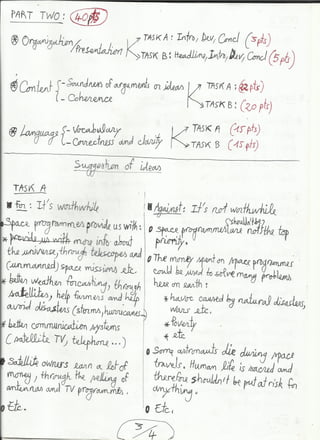 PART TWO: 40pts
⊛ Organization/Presentation
TASK A: Intro, Dev, Concl (3pts)
TASK B: Headline, Intro, Dev, Concl (5pts)
⊛ Content
- Soundness of arguments on ideas
- Coherence
TASK A: (2pts)
TASK B: (20pts)
⊛ Language
- Vocabulary
- Correctness and clarity
TASK A (15pts)
TASK B (15pts)
Suggestion of ideas
TASK A
For: It's worthwhile
Space programmes provide us with:
* provide us with more info about
the universe, through telescopes and
(unmanned) space missions etc.
* better weather forcasting, through
satellites, help farmers and help
avoid disasters (storms, hurricanes..)
* better communication systems
(satellite TV, telephone...)
Satellite owners earn a lot of
money, through the selling of
antennas and TV programmes.
Etc.
Against: It's not worthwhile
Space programmes are not the top (shouldn't be)
priority.
The money spent on space programmes
could be used to solve many problems
here on earth:
* havoc caused by natural disasters,
wars etc.
* Poverty
* etc
Some astronauts die during space
travels. Human life is sacred and
therefore shouldn't be put at risk for
anything.
Etc.
3/4